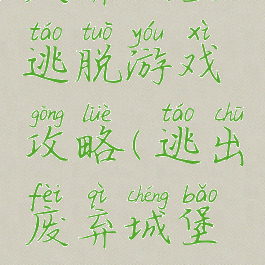 táo tuō yóu xì
逃脱游戏
gōng lüè táo chū
攻略(逃出
fèi qì chéng bǎo
废弃城堡